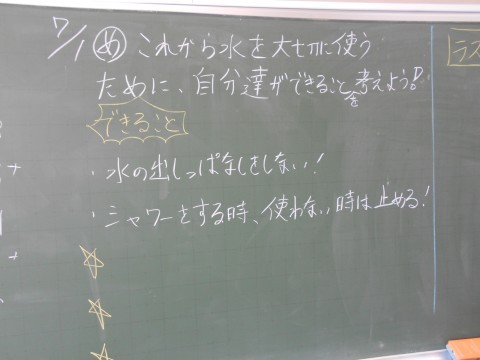 7/1 め これから水を大切に使う
ために、自分達ができることを考えよう!
できること
・水の出しっぱなしをしない!
・シャワーをする時、使わない時は止める!
ラス